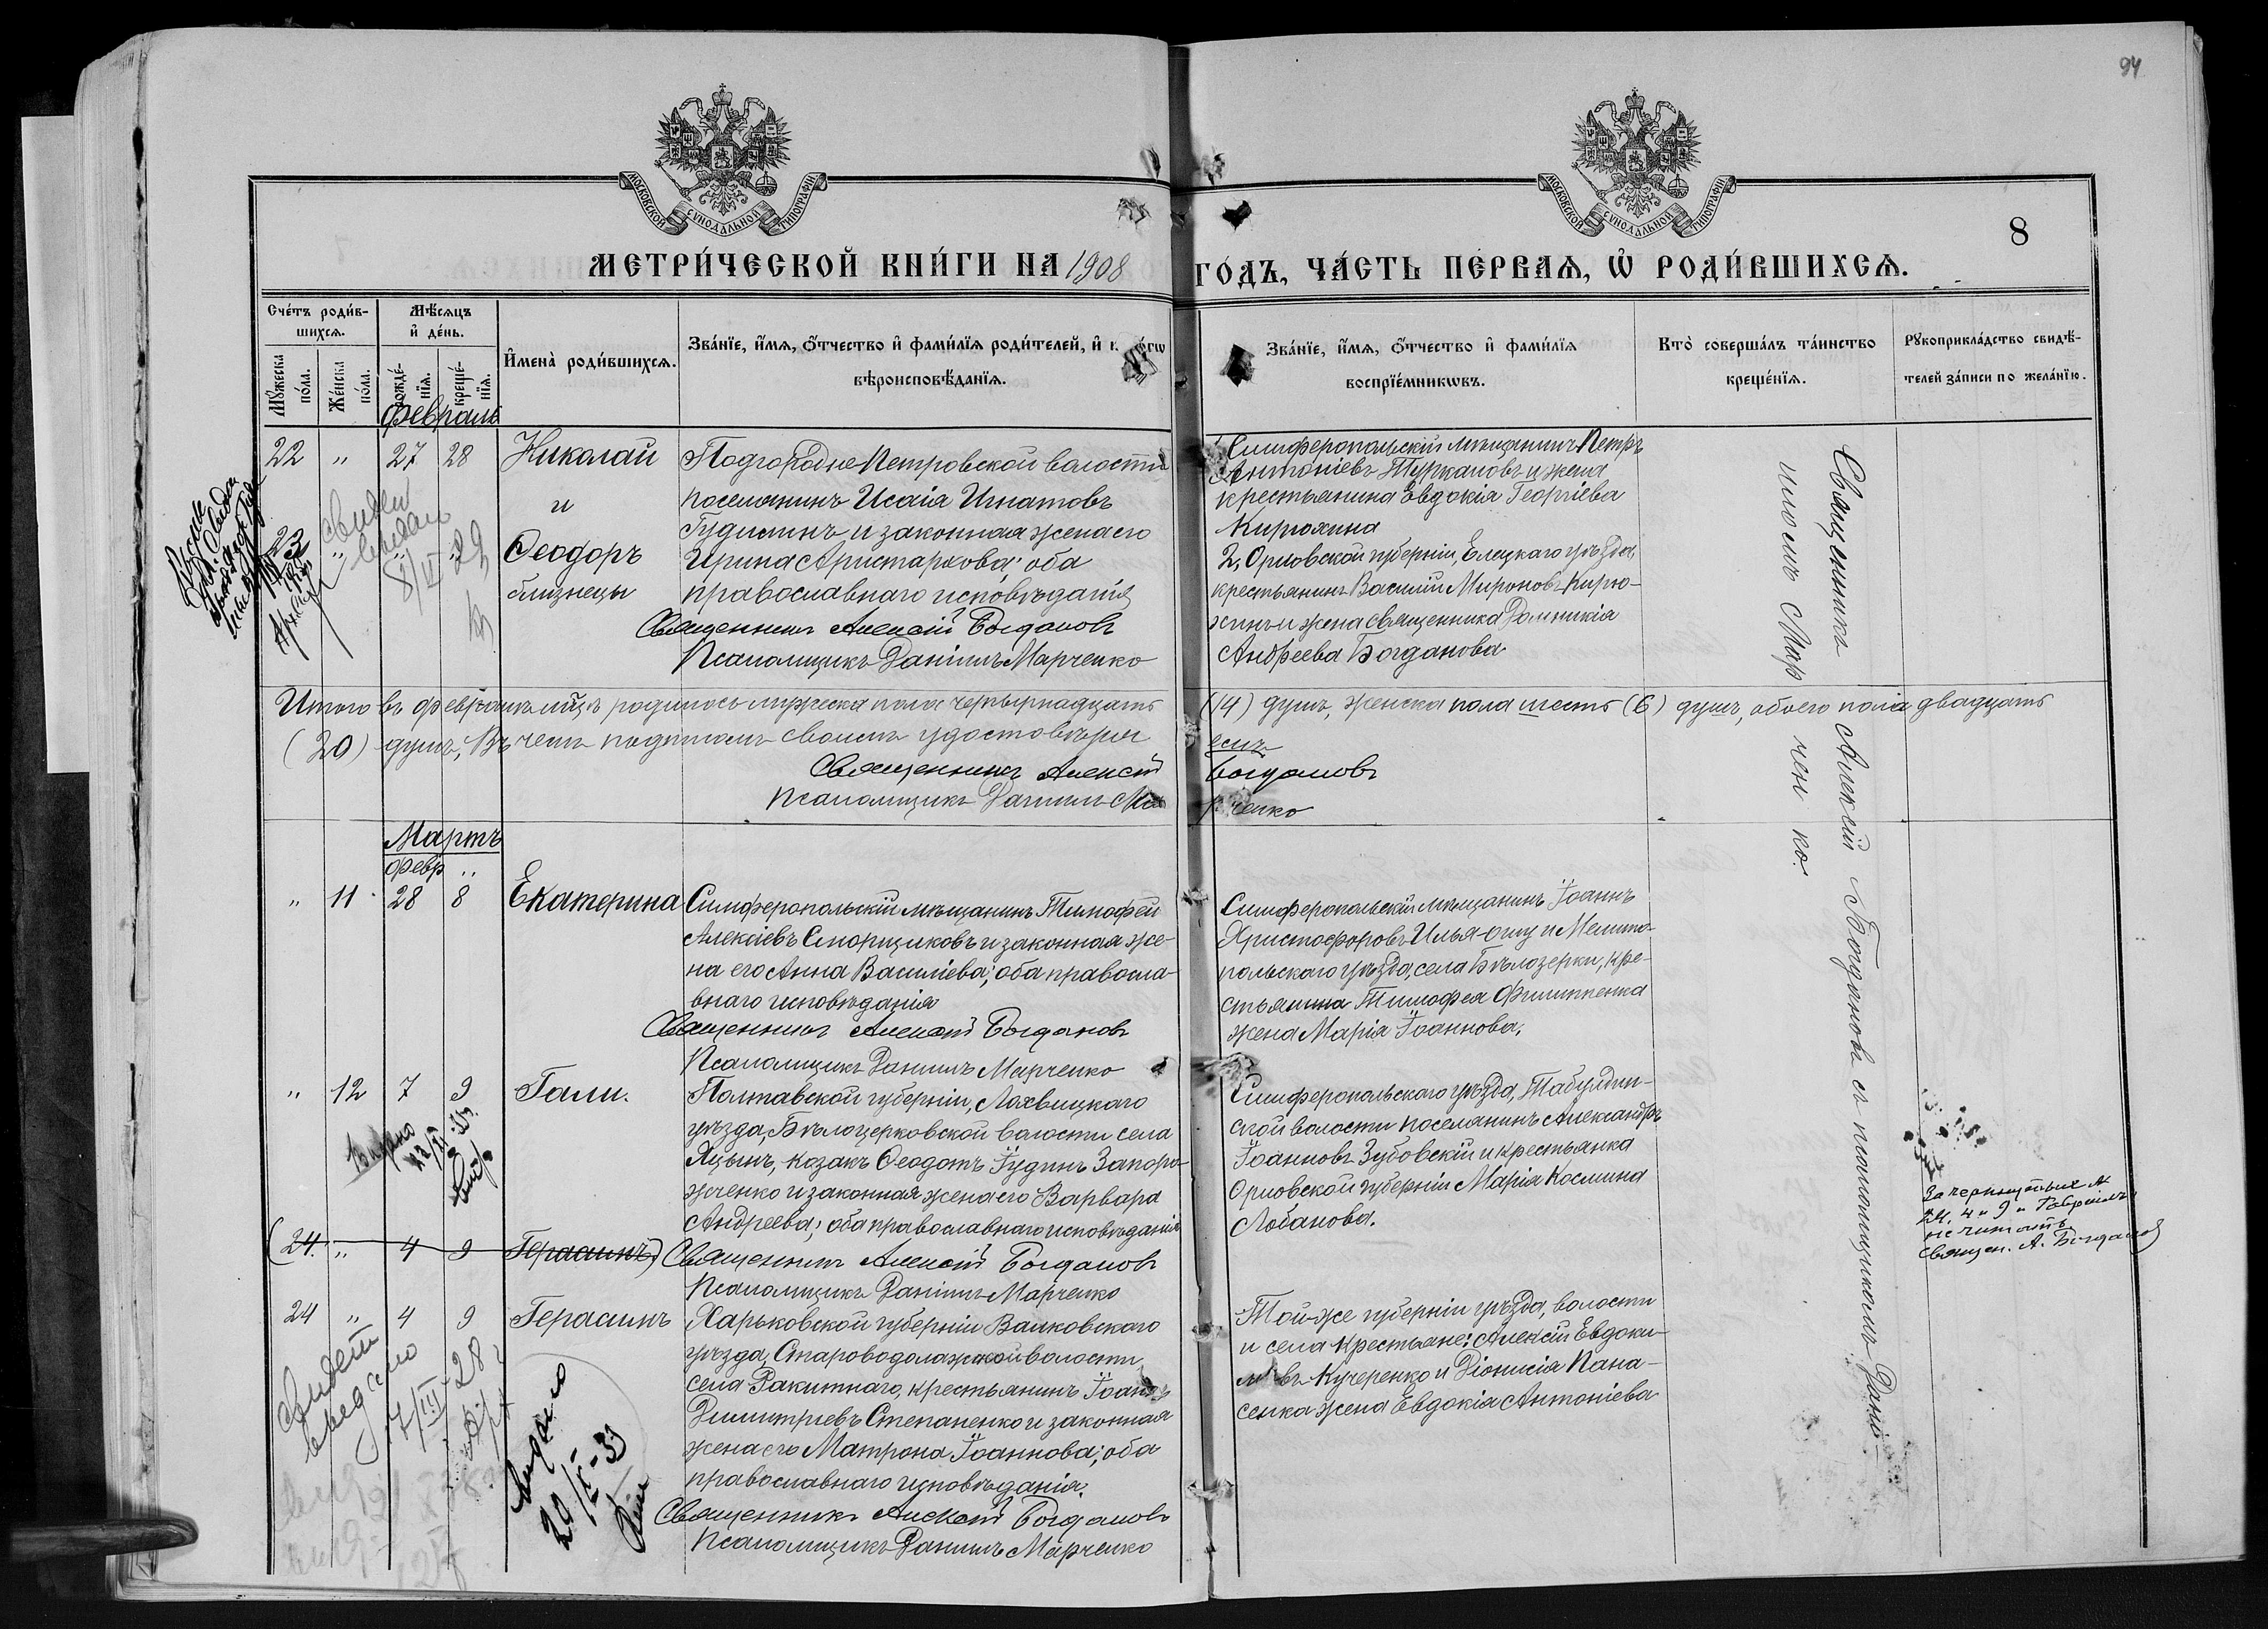 94
МОСКОВСКОЙ СѴНОДАЛЬНОЙ ТИПОГРАФІИ
МОСКОВСКОЙ СѴНОДАЛЬНОЙ ТИПОГРАФІИ
8
МЕТРИ́ЧЕСКОЙ КНИ́ГИ НА 1908 ГО́ДЪ, ЧА́СТЬ ПЕ́РВАѦ, Ѡ҆ РОДИ́ВШИХСѦ.
Сче́тъ роди́вшихсѧ.
Мꙋ́жеска по́ла.
Же́нска по́ла.
Мѣ́сѧцъ и҆ де́нь.
рожде́нїѧ.
креще́нїѧ.
И҆мена̀ роди́вшихсѧ.
Зва́нїе, и҆́мѧ, ѻ҆́тчество и҆ фами́лїѧ роди́телей, и҆ к
вѣроисповѣ́данїѧ.
Зва́нїе, и҆́мѧ, ѻ҆́тчество и҆ фами́лїѧ
воспрїе́мникѡвъ.
Кто̀ соверша́лъ та́инство
креще́нїѧ.
Рꙋкоприкла́дство свидѣ́-
телей за́писи по жела́нїю.
Февраль
22 " 27 28 Николай
и
23 " Ѳеодоръ
близнецы
Подгородне Петровской волости
поселянинъ Исаія Игнатовъ
Гудилинъ и законная жена его
Ирина Аристархова; оба
православнаго исповѣданія
Священникъ Алексій Богдановъ
Псаломщикъ Даніилъ Марченко
Симферопольскій мѣщанинъ Петръ
Антоніевъ Туркановъ и жена
крестьянина Евдокія Георгіева
Кирюхина
2, Орловской губерніи, Елецкаго уѣзда,
крестьянинъ Василій Мироновъ Кирю-
хинъ и жена священника Домникія
Андреева Богданова.
Священникъ Алексій Богдановъ съ псаломщикомъ Дані-
иломъ Марченко.
Итого въ февралѣ мцѣ родилось мужеска пола четырнадцать (14) душъ, женска пола шесть (6) душъ, обоего пола двадцать
(20) душъ, Въ чемъ подписомъ своимъ удостовѣряемъ
Священникъ Алексій Богдановъ
Псаломщикъ Даніилъ Марченко
Мартъ
февр "
" 11 28 8 Екатерина
Симферопольскій мѣщанинъ Тимофей
Алексіевъ Сторщиковъ и законная же-
на его Анна Василіева; оба правосла-
внаго исповѣданія
Священникъ Алексій Богдановъ
Псаломщикъ Даніилъ Марченко
Симферопольскій мѣщанинъ Іоаннъ
Христофоровъ Илья-оглу и Мелито-
польскаго уѣзда, села Бѣлозерки, кре-
стьянина Тимофея Филиппенка
жена Марія Іоаннова.
" 12 7 9 Гали.
Полтавской губерніи, Лохвицкаго
уѣзда, Бѣлоцерковской волости села
Яцынъ, козакъ Ѳеодотъ Іудинъ Запоро-
жченко и законная жена его Варвара
Андреева; оба православнаго исповѣданія
Священникъ Алексій Богдановъ
Псаломщикъ Даніилъ Марченко
Симферопольскаго уѣзда, Табулдин-
ской волости поселянинъ Александръ
Іоанновъ Зубовскій и крестьянка
Орловской губерніи Марія Космина
Лобанова.
(24. " 4 9 Герасимъ)
Зачеркнутыхъ
24, 4 и 9
не читать
Священ. А. Богданов
24 " 4 9 Герасимъ
Харьковской губерніи Валковскаго
уѣзда, Староводолажской волости,
села Ракитнаго, крестьянинъ Іоаннъ
Димитріевъ Степаненко и законная
жена его Матрона Іоаннова; оба
православнаго исповѣданія.
Священникъ Алексій Богдановъ
Псаломщикъ Даніилъ Марченко
Той-же губерніи уѣзда, волости
и села крестьяне: Алексій Евдоки-
мовъ Кучеренко и Діонисія Пана-
сенка жена Евдокія Антоніева
Выдано